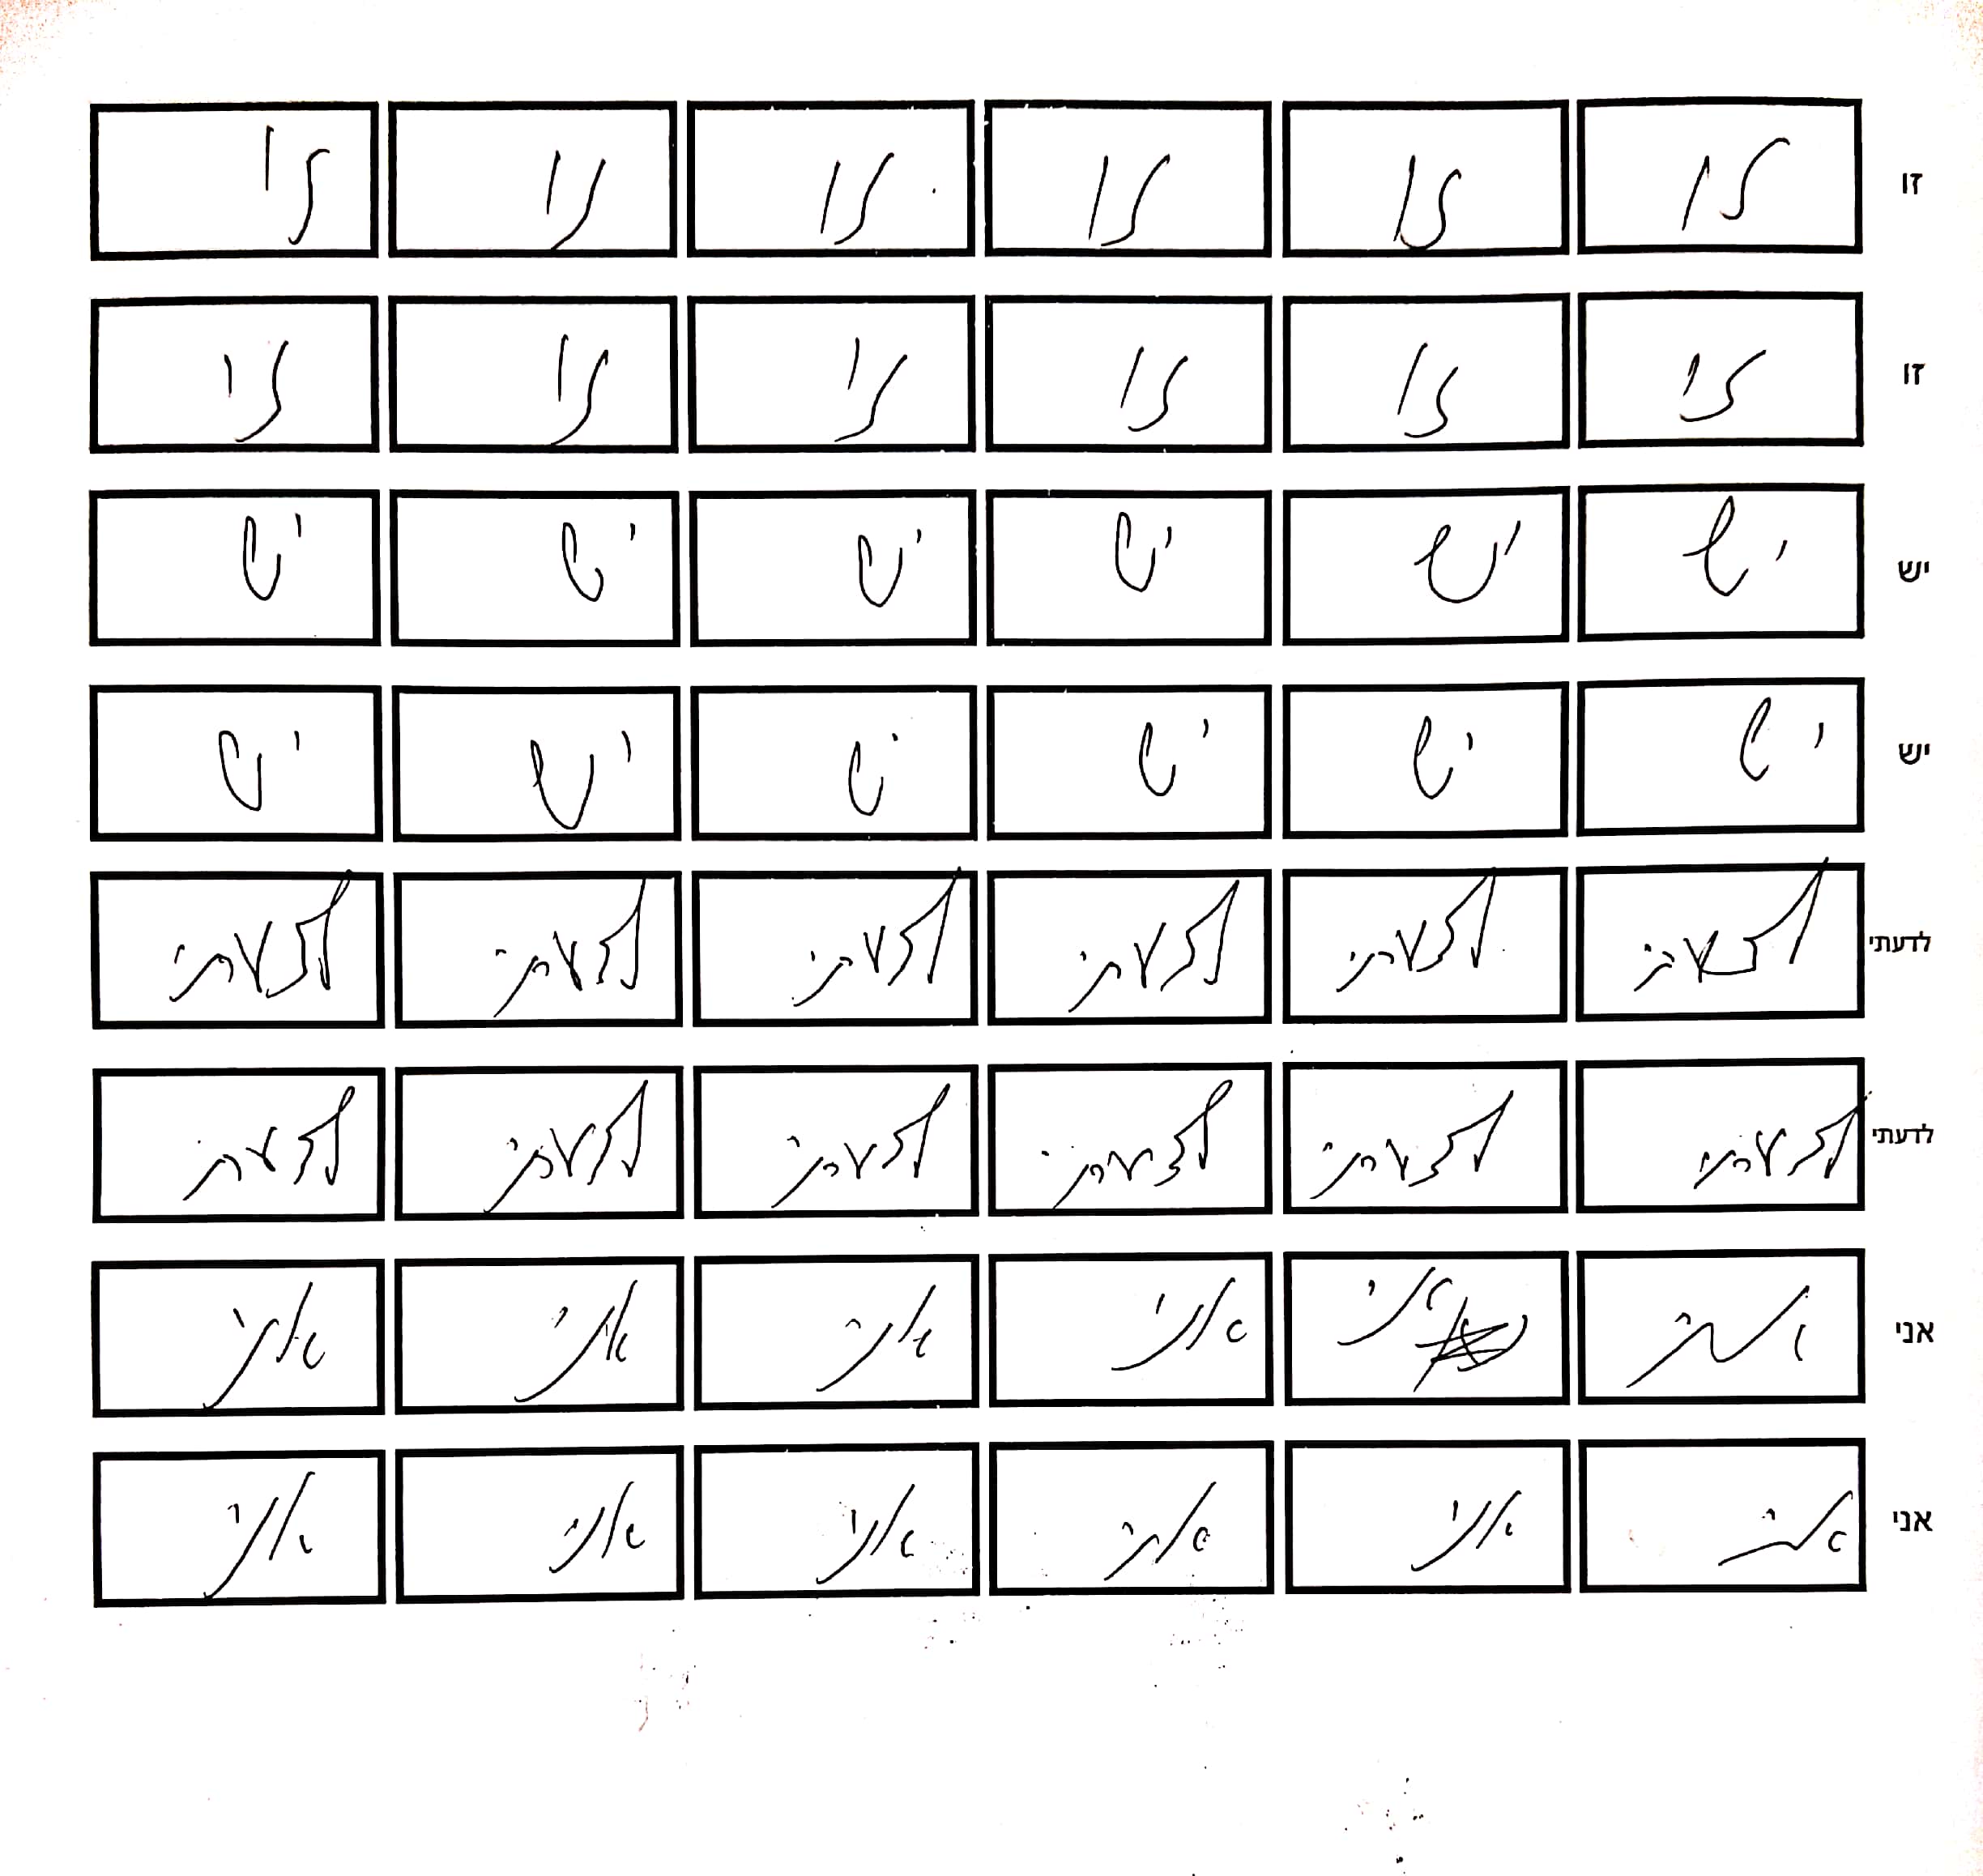 זו זו זו זו זו זו זו
זו זו זו זו זו זו זו
יש יש יש יש יש יש יש
יש יש יש יש יש יש יש
לדעתי לדעתי לדעתי לדעתי לדעתי לדעתי לדעתי
לדעתי לדעתי לדעתי לדעתי לדעתי לדעתי לדעתי
אני אני אני אני אני אני אני
אני אני אני אני אני אני אני